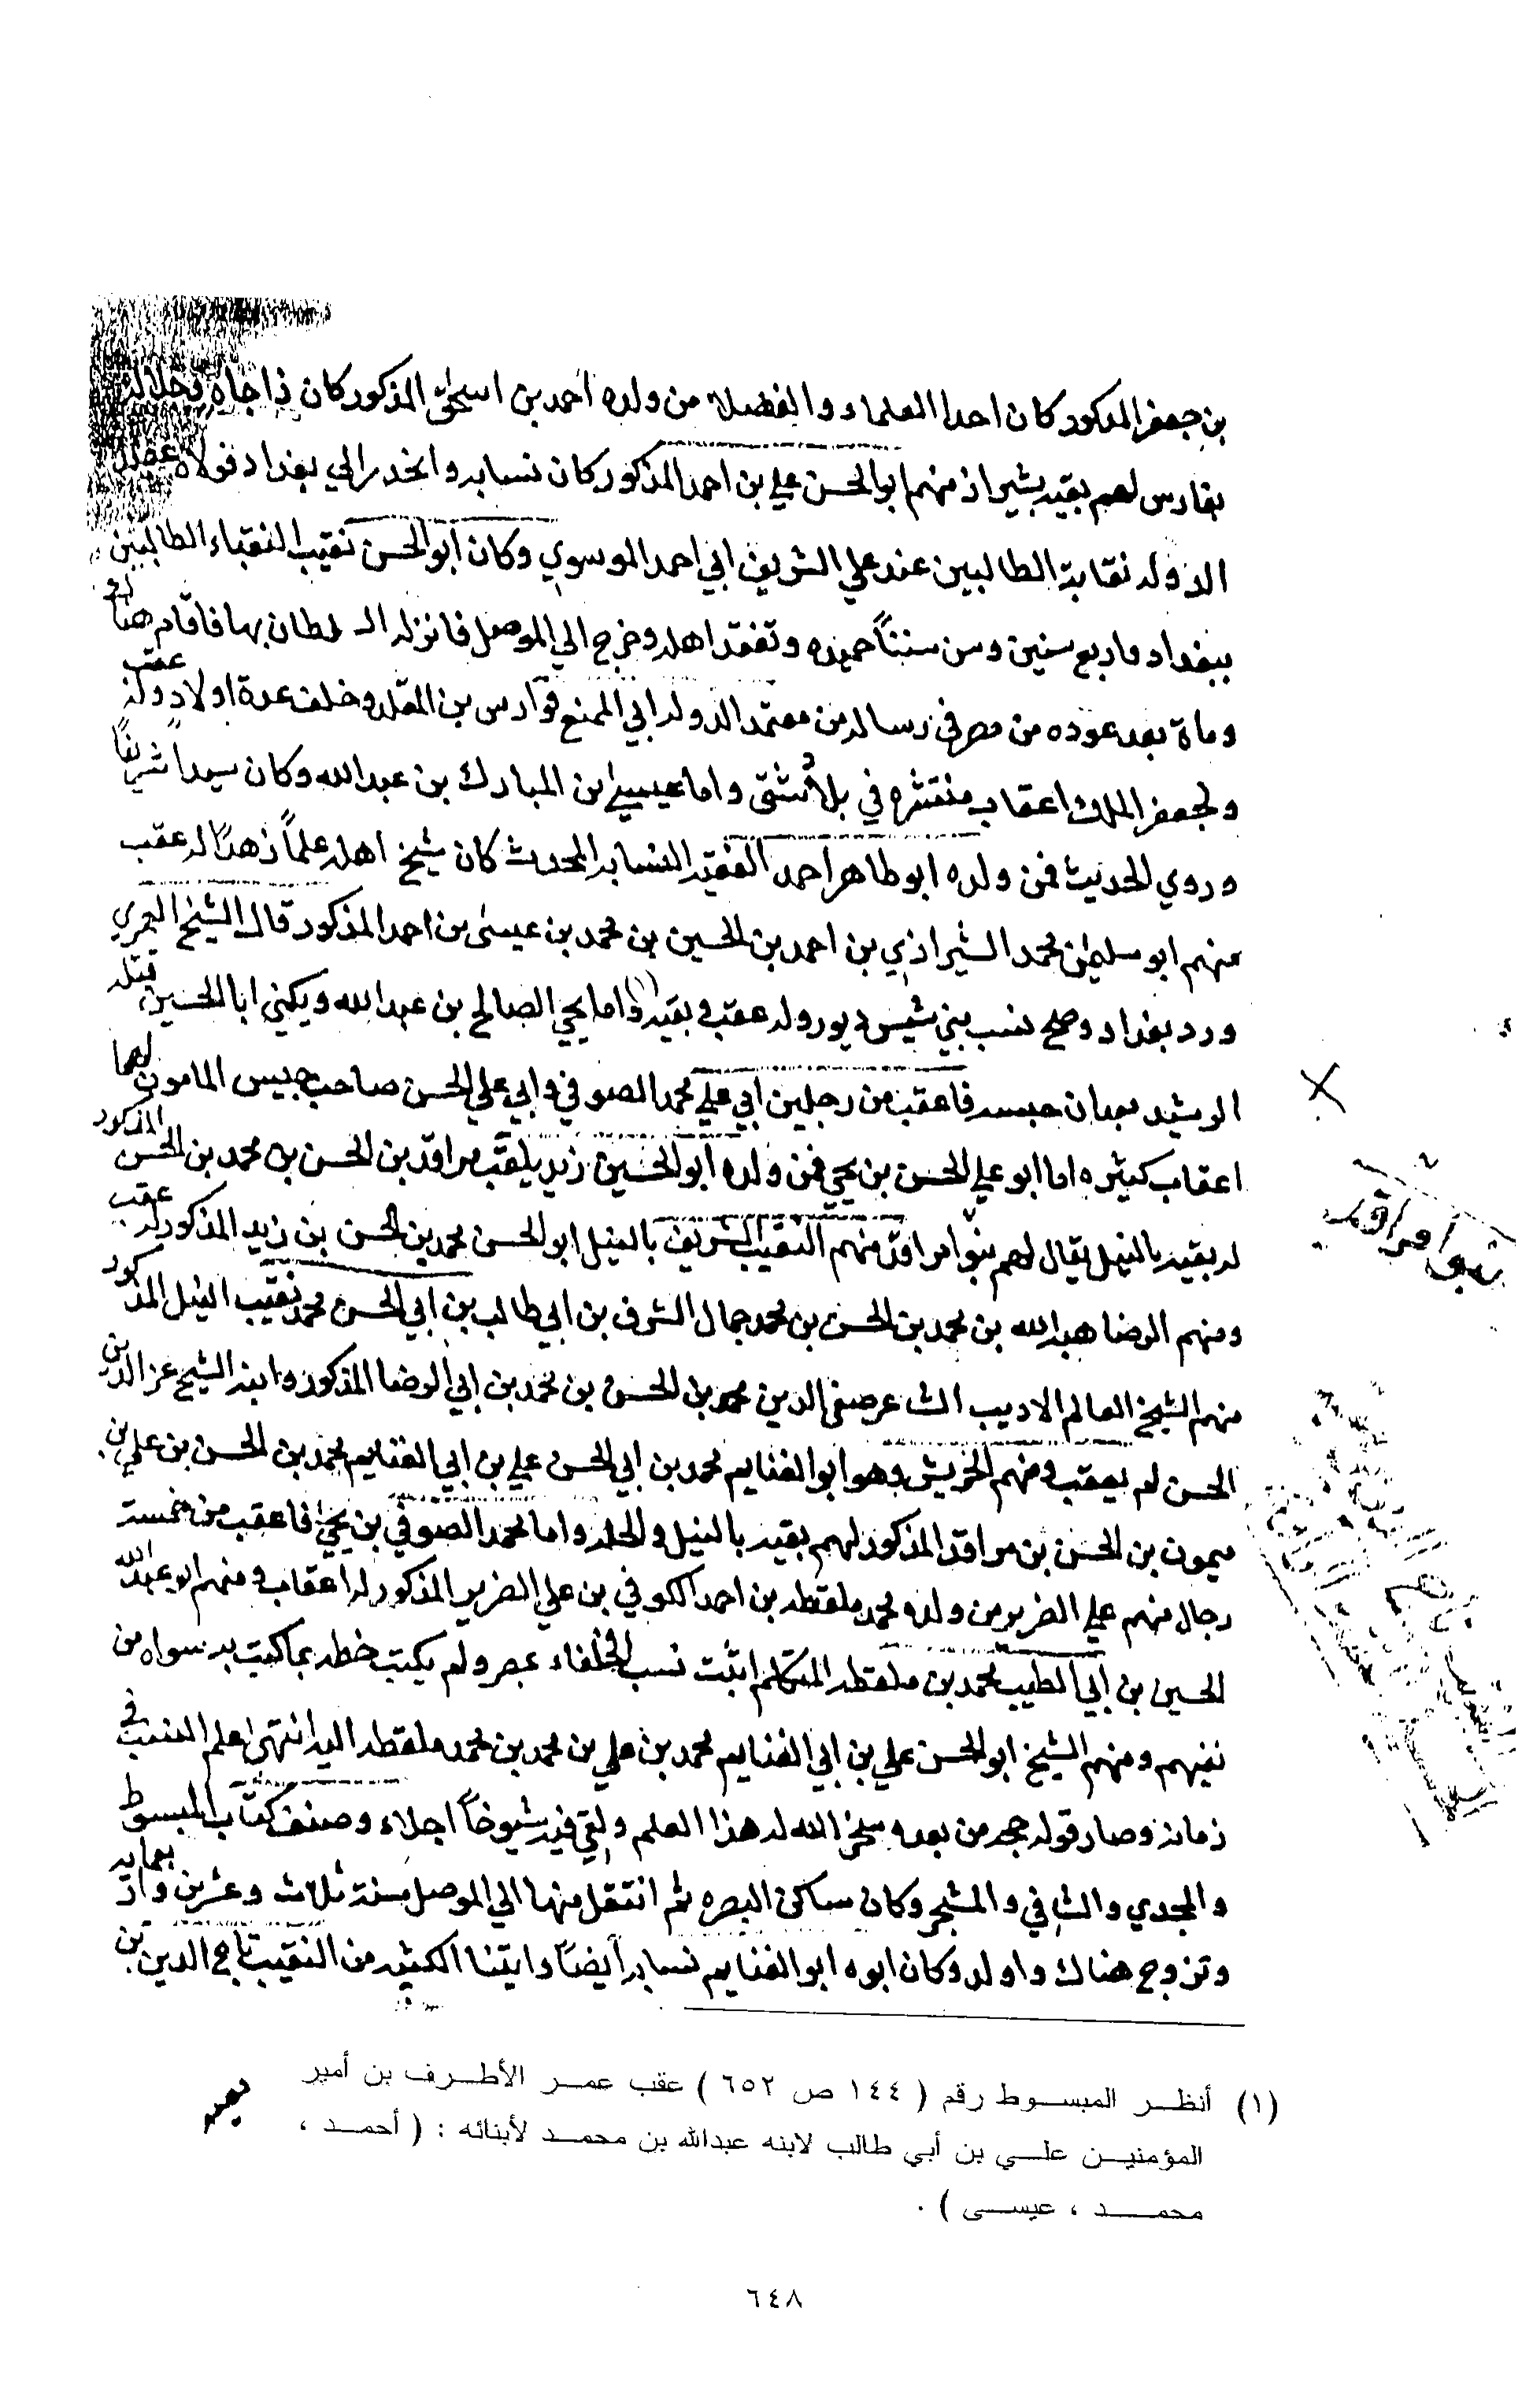 بن جعفر المذكور كان احد العلماء والفضلاء من ولده احمد بن اسحق المذكور كان ذا جاه وجلاله
بفارس لهم بقيه بشيراز منهم ابو الحسن علي بن احمد المذكور كان نسابه وانحدر الي بغداد فولاه عضد
الدوله نقابة الطالبيين عند علي الشريف ابي احمد الموسوي وكان ابو الحسن نقيب النقباء الطالبيين
ببغداد واربع سنين وسن سنناً حميده وتفقد اهله وخرج الي الموصل فانزله السلطان بها فاقام هناك
ومات بعد عوده من مصر في رساله من معتمد الدوله ابي المنيع قوادس بن المقلد وخلف عدة اولاد وله عقب
ولجعفر الملك اعقاب منتشره في بلاد شتي واما عيسي بن المبارك بن عبدالله وكان سيداً شريفاً
وروي الحديث فمن ولده ابو طاهر احمد الفقيه النسابه المحدث كان شيخ اهله علماً زهداً له عقب
منهم ابو سليمن محمد الشيرازي بن احمد بن الحسين بن محمد بن عيسى بن احمد المذكور قال الشيخ العمري
ورد بغداد وصح نسب بني شيس ديور وله عقب وبقيه (١) واما يحي الصالح بن عبدالله ويكني ابا الحسين قتله
الرشيد بعد ان حبسه فاعقب من رجلين ابي علي محمد الصوفي وابي علي الحسن صاحب حبس المامون لهما
اعقاب كثيره اما ابو علي الحسن بن يحي فمن ولده ابو الحسين زيد يلقب مراقد بن الحسن بن محمد بن الحسن المذكور
له بقيه بالنيل يقال لهم بنوا مراقد منهم النقيب الشريف بالنيل ابو الحسن محمد بن الحسن بن زيد المذكور له عقب
ومنهم الرضا هبدالله بن محمد بن الحسن بن محمد جمال الشرف بن ابي طالب بن ابي الحسن محمد نقيب النيل المذكور
منهم الشيخ العالم الاديب الشاعر صفي الدين محمد بن الحسن بن محمد بن ابي الرضا المذكور وابنه الشيخ عز الدين
الحسن لم يعقب ومنهم الخريش وهو ابو الغنايم محمد بن ابي الحسن علي بن ابي الغنايم محمد بن الحسن بن علي بن
ميمون بن الحسن بن مراقد المذكور لهم بقيه بالنيل والحله واما محمد الصوفي بن يحي فاعقب من خمسة
رجال منهم علي الضرير من ولده محمد ملقطه بن احمد الكوفي بن علي الضرير المذكور له اعقاب ومنهم ابو عبدالله
الحسين بن ابي الطيب محمد بن ملقطه المتكلم اثبت نسب الخلفاء بمصر ولم يكتب خطه بما كتب به سواه من
نفيهم ومنهم الشيخ ابو الحسن علي بن ابي الغنايم محمد بن علي بن محمد بن محمد ملقطه اليه انتهى علم النسب في
زمانه وصار قوله حجه من بعده سخر الله له هذا العلم ولقي فيه شيوخاً اجلاء وصنف كتاب المبسوط
والمجدي والشافي والمشجر وكان ساكن البصره ثم انتقل منها الي الموصل سنة ثلاث وعشرين واربعمايه
وتزوج هناك واولد وكان ابوه ابو الغنايم نسابه ايضاً رايتنا الكثير من النقيب تاج الدين بن
بنوا مراقد
(١) أنظر المبسوط رقم ( ١٤٤ ص ٦٥٢ ) عقب عمر الأطرف بن أمير
المؤمنين علي بن أبي طالب لابنه عبدالله بن محمد لأبنائه : ( أحمد ،
محمد ، عيسى ) .
٦٤٨